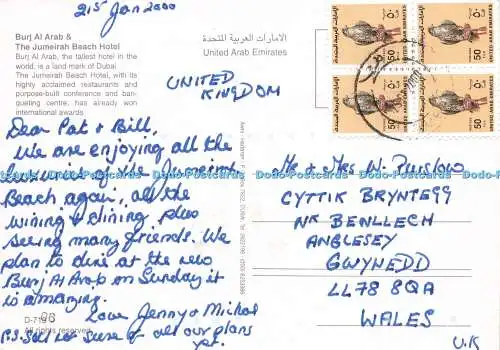 21st Jan 2000
Burj Al Arab &
The Jumeirah Beach Hotel
Burj Al Arab, the tallest hotel in the
world, is a land mark of Dubai.
The Jumeirah Beach Hotel, with its
highly acclaimed restaurants and
purpose-built conference and ban-
queting centre, has already won
international awards.
الامارات العربية المتحدة
United Arab Emirates
UNITED
KINGDOM
Dear Pat & Bill,
We are enjoying all the
luxuries of the Jumeirah
Beach again, all the
wining & dining plus
seeing many friends. We
plan to dine at the new
Burj Al Arab on Sunday it
is amazing.
Love Jenny & Michael
P.S. Still not sure of all our plans
yet.
D-71
All rights reserved
Mr & Mrs W.
CYTTIK BRYNTEGG
NR BENLLECH
ANGLESEY
GWYNEDD
LL78 8QA
WALES
U.K
50
UNITED ARAB EMIRATES
50
UNITED ARAB EMIRATES
50
UNITED ARAB EMIRATES
50
UNITED ARAB EMIRATES
Dodo-Postcards